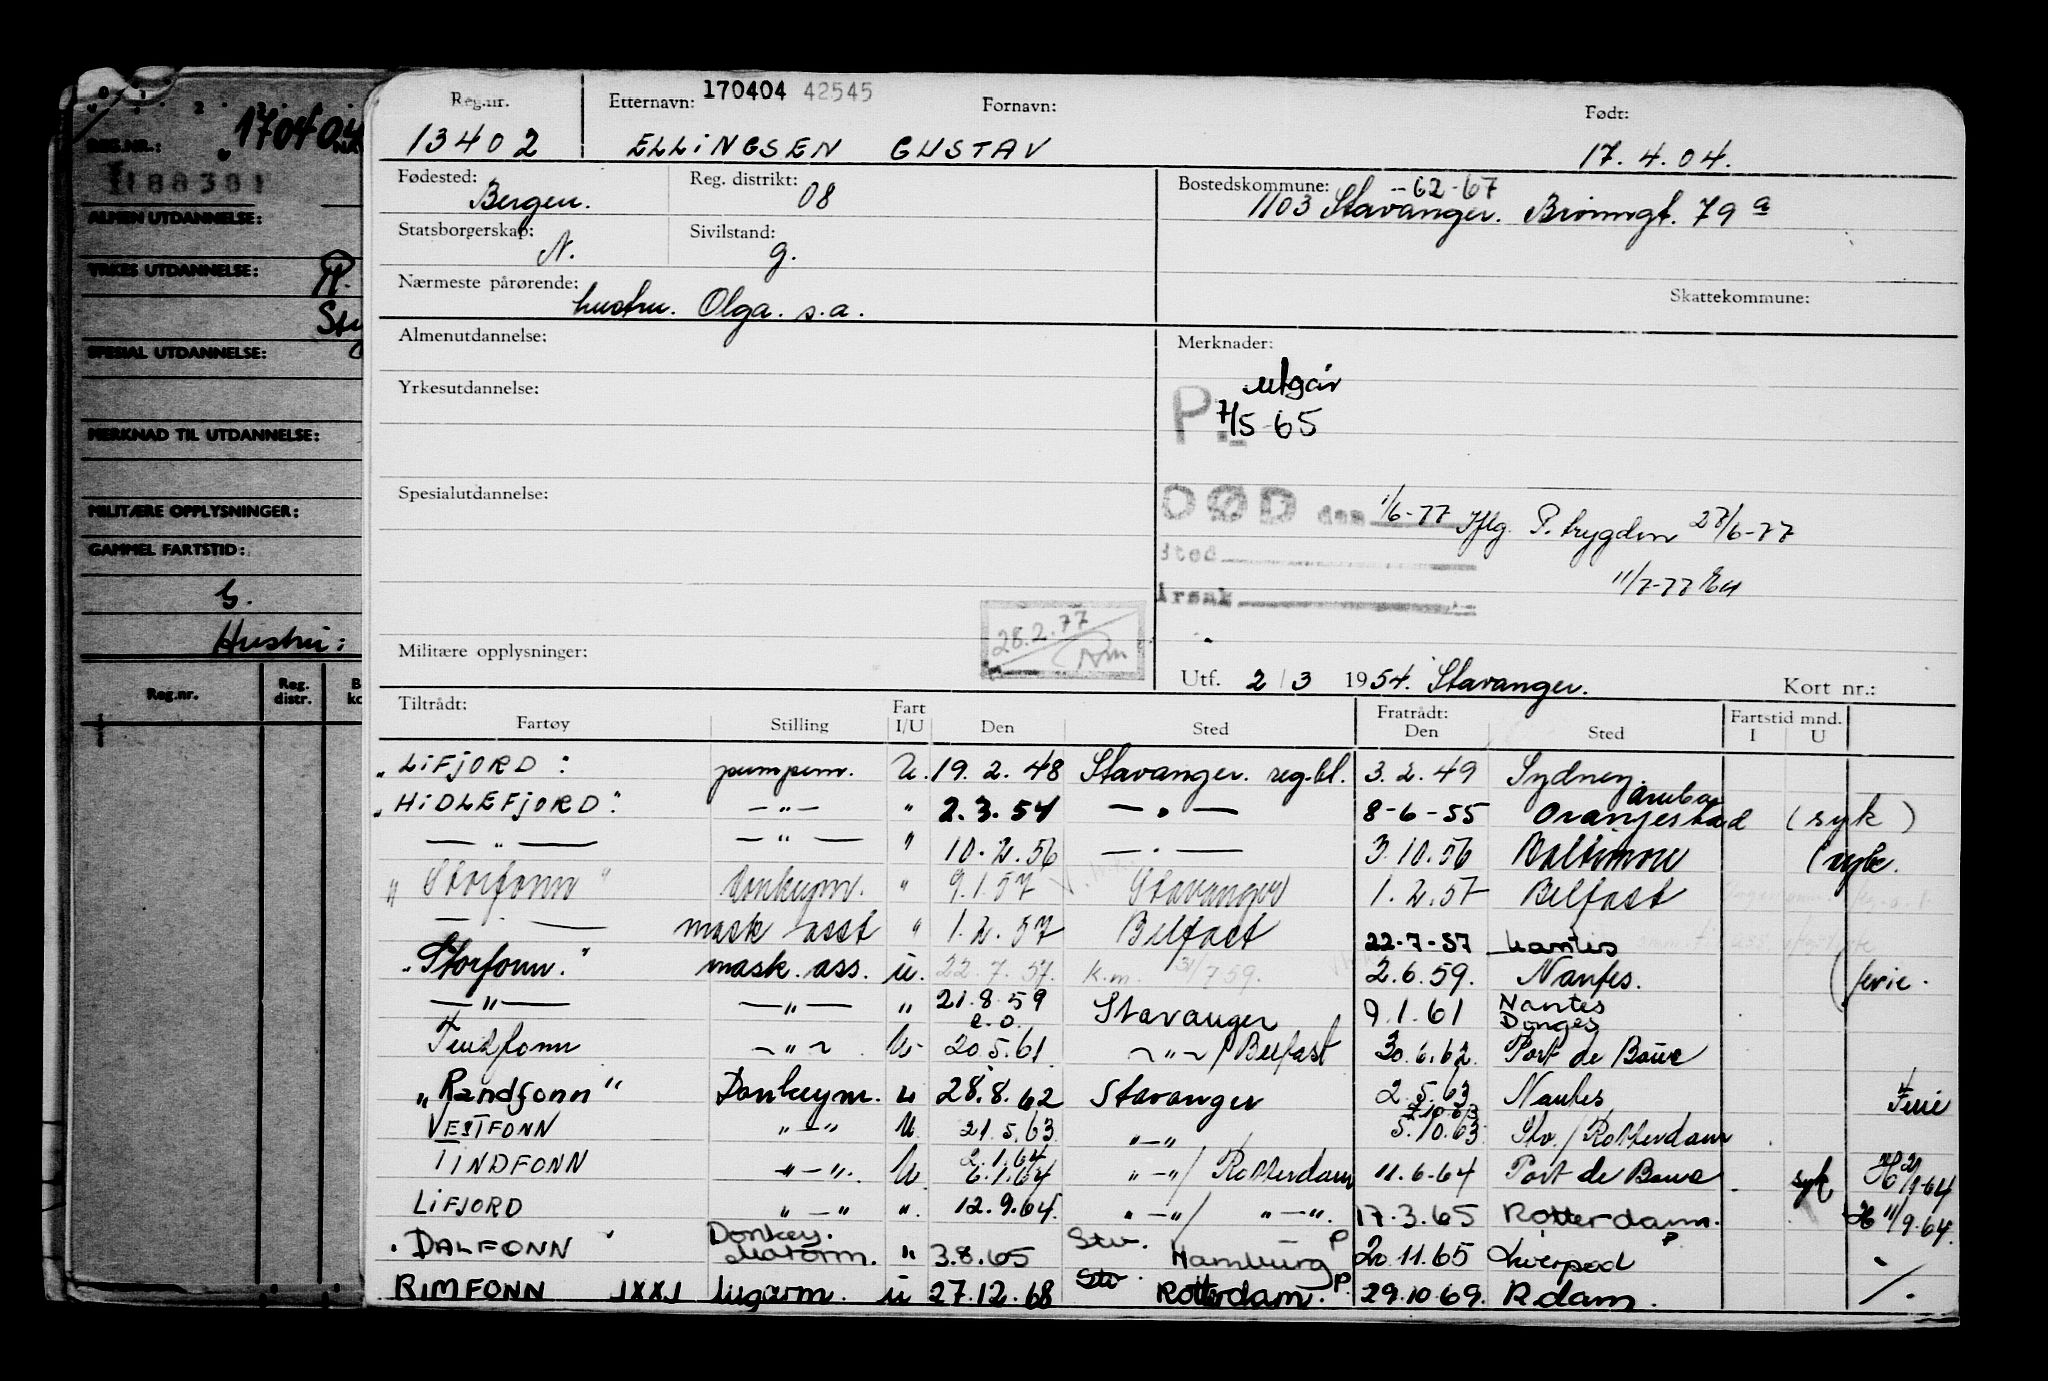 170404
REG.NR.:
1188381
ALMEN UTDANNELSE:
YRKES UTDANNELSE:
SPESIAL UTDANNELSE:
MERKNAD TIL UTDANNELSE:
MILITÆRE OPPLYSNINGER:
GAMMEL FARTSTID:
G.
Hustru:
Reg.nr. Reg. distr.
Reg.nr. Etternavn: 170404 42545 Fornavn: Født:
13402 ELLINGSEN GUSTAV 17.4.04.
Fødested: Bergen. Reg. distrikt: 08 Bostedskommune: -62-67
1103 Stavanger. Brønngt. 79 a
Statsborgerskap: N. Sivilstand: g.
Nærmeste pårørende: hustru. Olga. s.a. Skattekommune:
Almenutdannelse: Merknader:
utgår
Yrkesutdannelse: P. 7/5-65
Spesialutdannelse: DØD den 1/6-77 Iflg. P. trygden 27/6-77
Sted
11/7-77
Årsak
28.2.77
Militære opplysninger:
Utf. 2/3 1954. Stavanger. Kort nr.:
Tiltrådt: Fart Fratrådt: Fartstid mnd.
Fartøy Stilling I/U Den Sted Den Sted I U
"LIFJORD: pumpem. U. 19.2.48 Stavanger. reg.bl. 3.2.49 Sydney.
"HIDLEFJORD" —"— " 2.3.54 —"— 8-6-55 Aruba Oranjestad (syk)
—"— —"— " 10.2.56 —"— 3.10.56 Baltimore
"Storfonn" donkeym. " 9.1.57 Stavanger 1.2.57 Belfast
—"— mask asst " 1.2.57 Belfast 22-7-57 Nantes
"Storfonn." mask. ass. u. 22.7.57. k.m. 31/7 59. 2.6.59. Nantes. (ferie.
—"— —"— " 21.8.59 Stavanger 9.1.61 Nantes Donges
e.o.
Tindfonn —"— U. 20.5.61 —"—/Belfast 30.6.62. Port de Bouc
"Randfonn" Donkeym. u 28.8.62 Stavanger 2.5.63 Nantes Ferie
VESTFONN "—" U. 21.5.63 "—" 7.10.63 5.10.63. Stv./Rotterdam
TINDFONN "—". U. 2.1.64 6.1.64 "—"/Rotterdam 11.6-64 Port de Bouc syk 2/1-64
LIFJORD "—" ". 12.9.64. "—"/ "—". 17.3.65 Rotterdam. 11/9.64.
"DALFONN" Donkey. Motorm. " 3.8.65 Stv. Hamburg P 20.11.65 Liverpool P
RIMFONN JXXJ lugarm. u 27.12.68 Stv Rotterdam. P 29.10.69. Rdam.